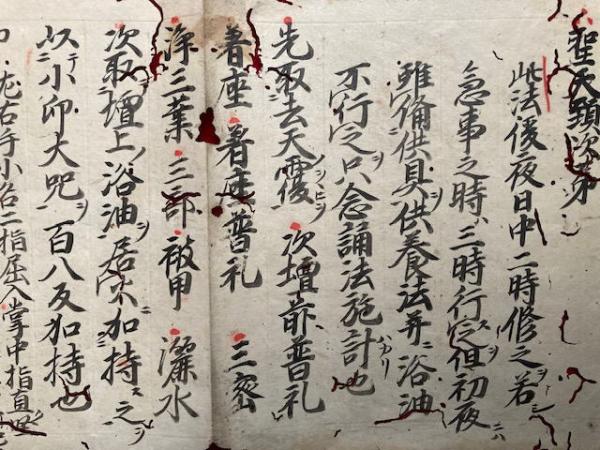 聖天顕次第
此法後夜日中二時修之若シ
急事之時ハ三時行之但初夜ニハ
雖備供具ヲ供養法并ニ浴油ヲ
不行之只念誦法施計也
先取去天覆ヲ 次壇前普礼
着座 着座普礼 三密
浄三業 三部 被甲 灑水
次取壇上ノ浴油ヲ居前ニ加持之ヲ
以テ小卯大呪ヲ一百八反加持也
二指屈入掌中指直竪